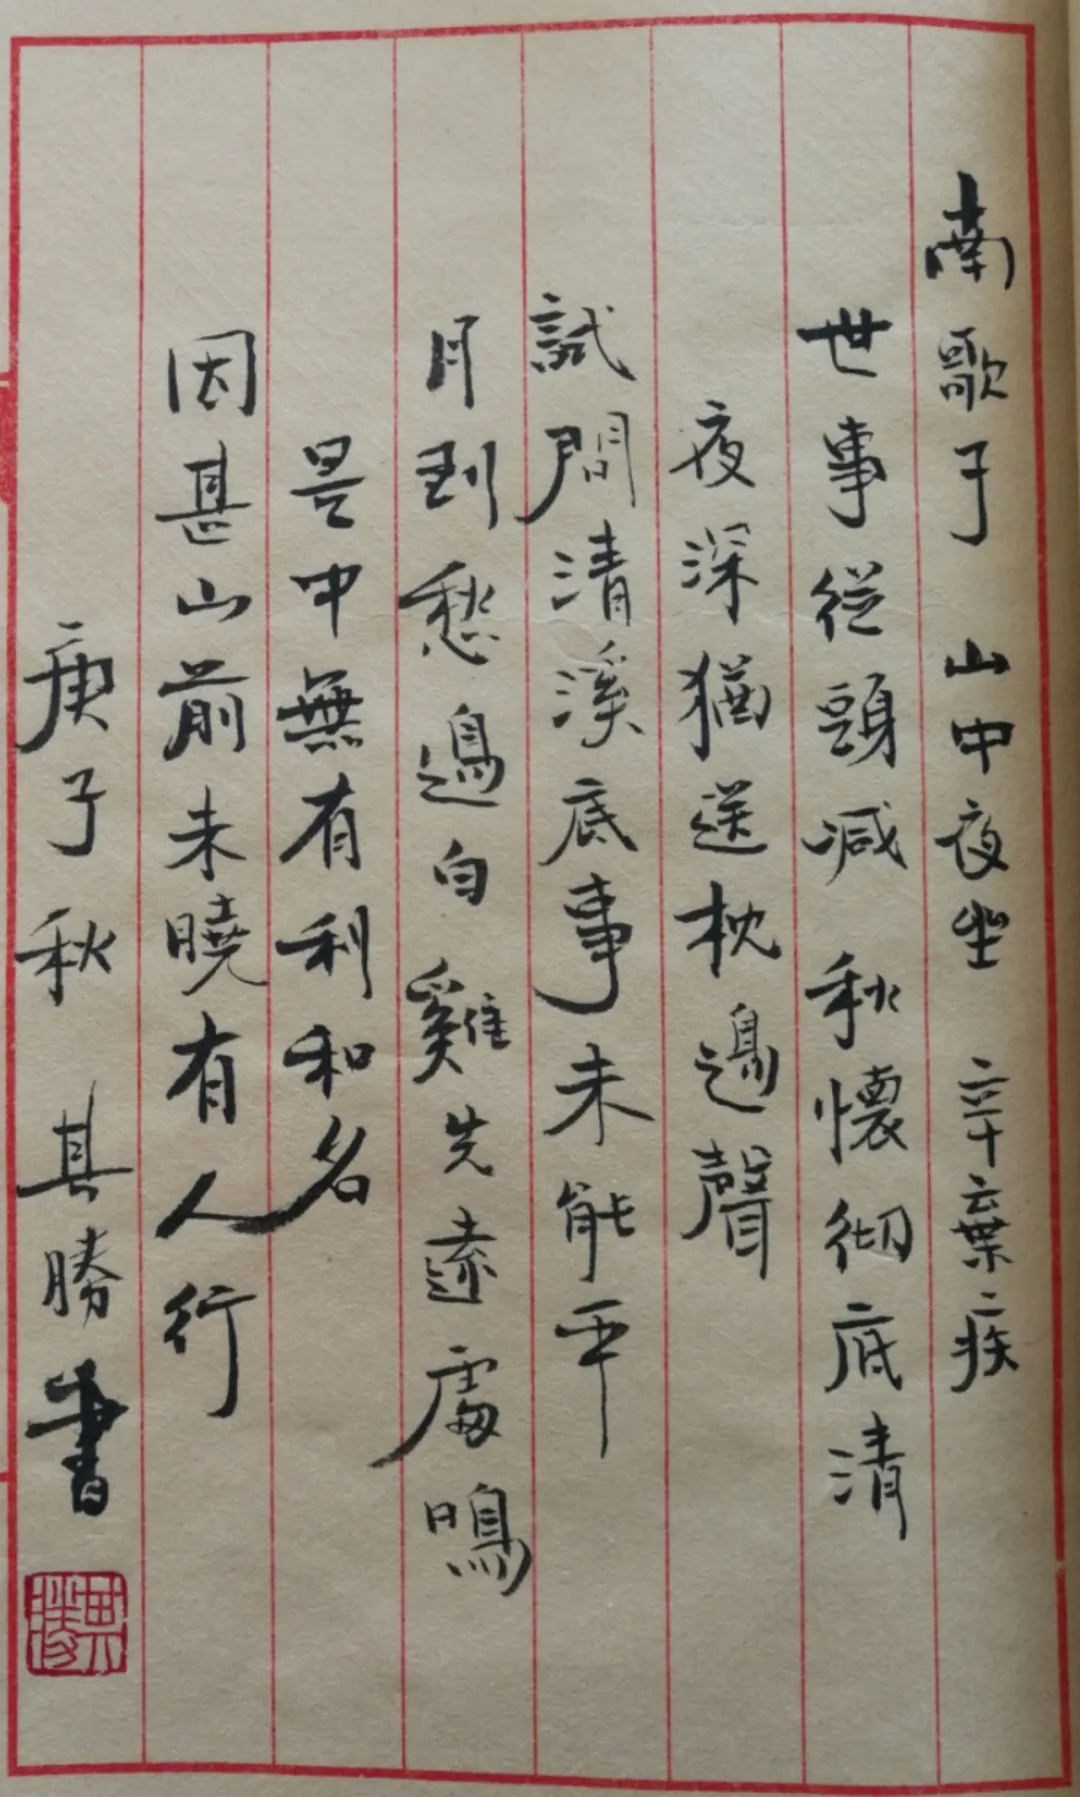 南歌子 山中夜坐 辛棄疾
世事從頭減 秋懷徹底清
夜深猶送枕邊聲
試問清溪底事未能平
月到愁邊白 雞先遠處鳴
是中無有利和名
因甚山前未曉有人行
庚子秋 其勝書
其勝